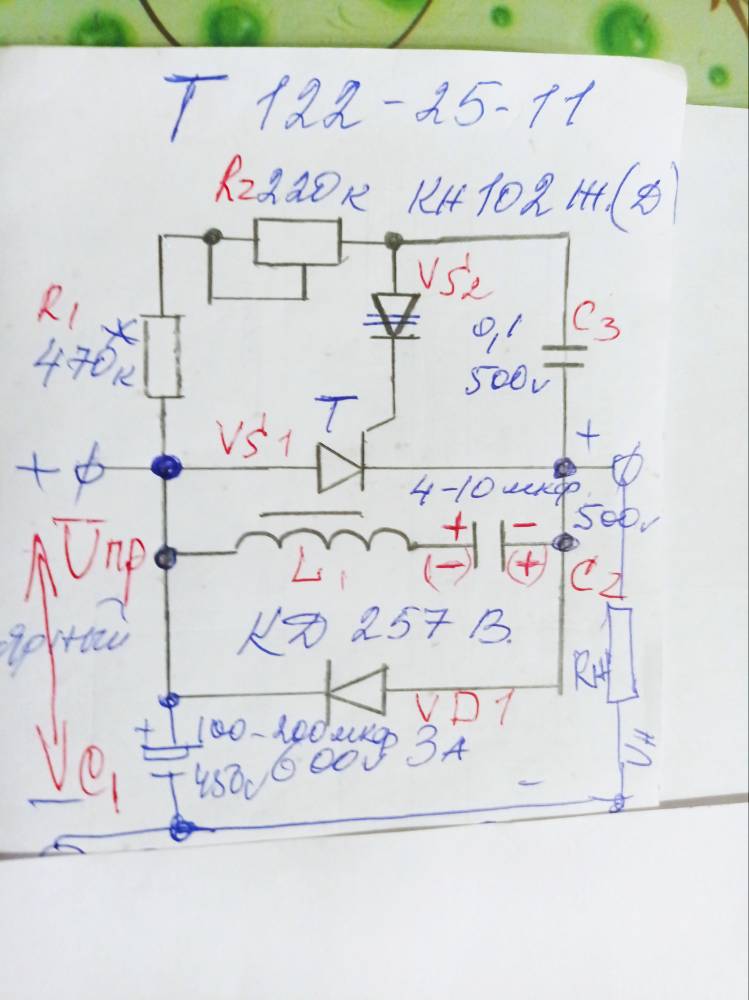 Т 122-25-11
R2 220к КН102Ж.(Д)
VS2
R1
470к
C3
0,1
500v
Т
VS1
+
+
4-10мкф.
500v
Uпр
+ -
(-) (+)
L1
C2
КД 257В.
Rн
VD1
+
100-200мкф
450v 600v 3А
Uн
C1
-
-